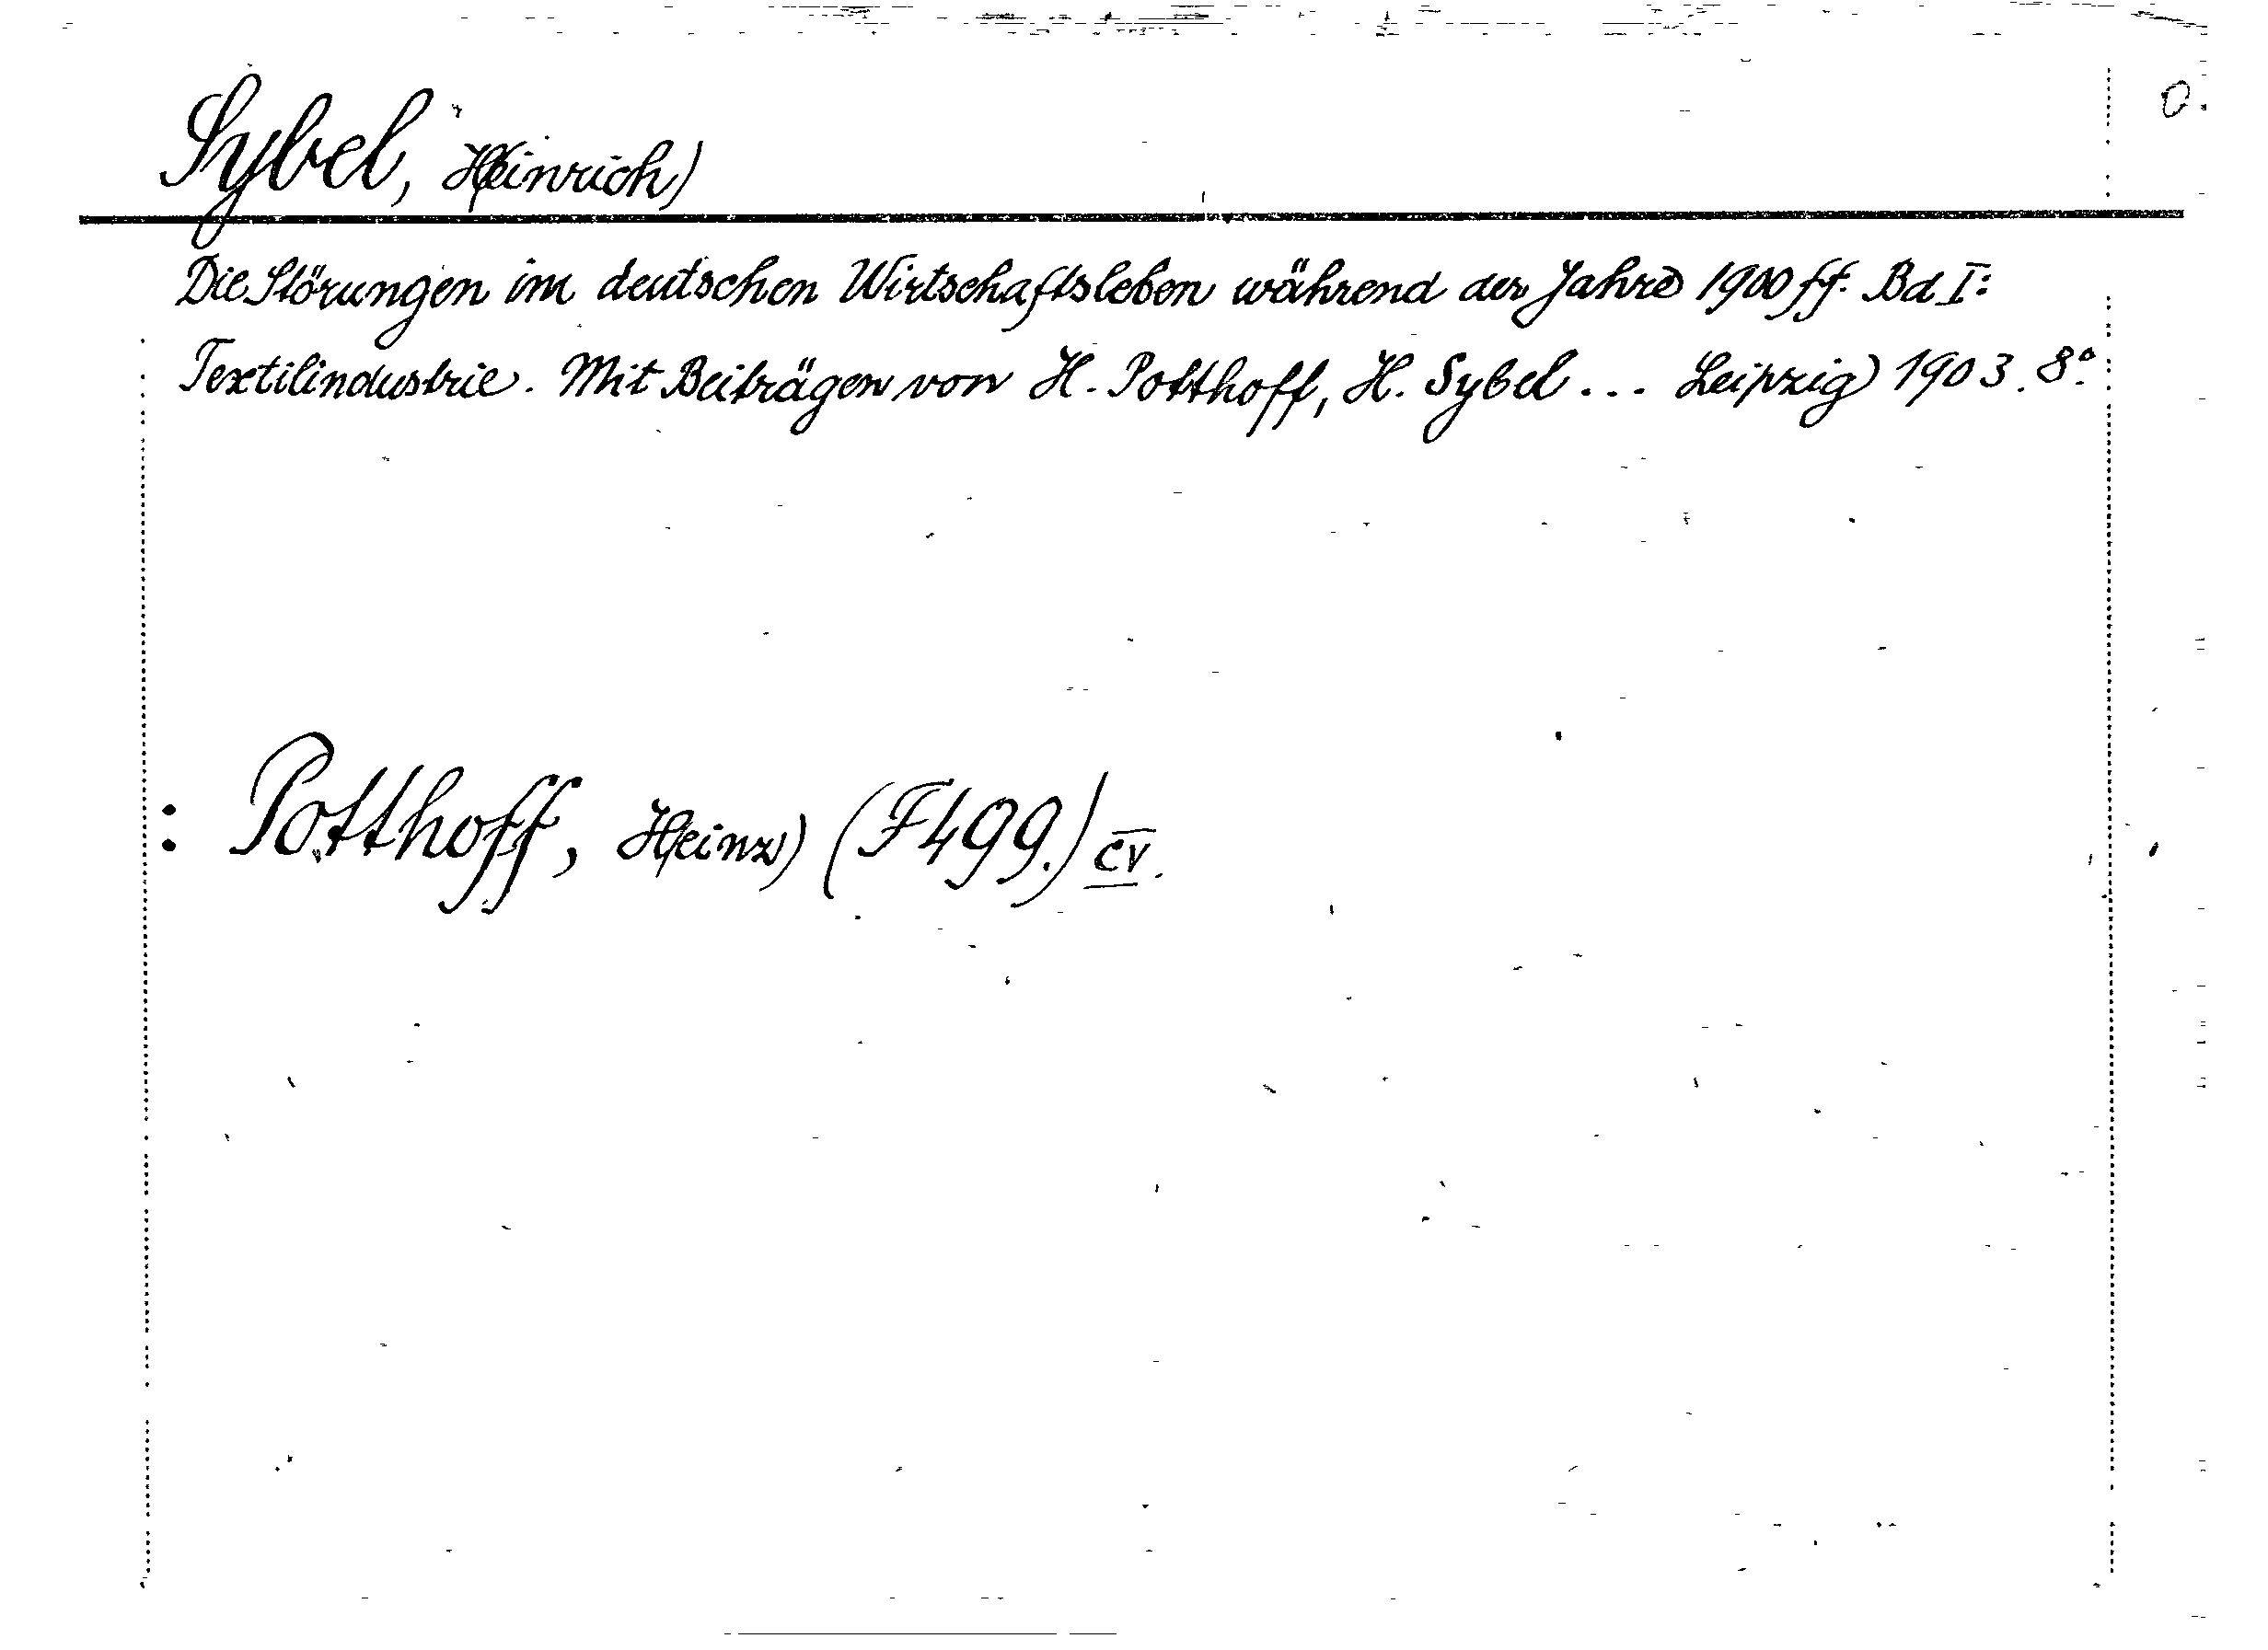 0.
Sybel, H(einrich)
Die Störungen im deutschen Wirtschaftsleben während der Jahre 1900 ff. Bd I:
Textilindustrie. Mit Beiträgen von H. Potthoff, H. Sybel ... Leipzig 1903. 8º.
: Potthoff, H(einz) (F499.) CV.